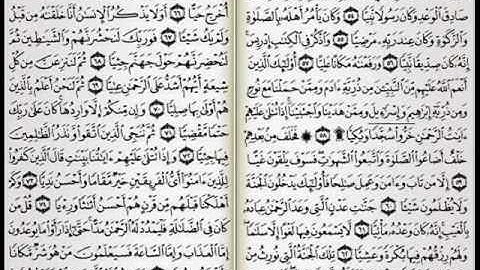 صَادِقَ ٱلْوَعْدِ وَكَانَ رَسُولًا نَّبِيًّا ٥٤ وَكَانَ يَأْمُرُ أَهْلَهُۥ بِٱلصَّلَوٰةِ
وَٱلزَّكَوٰةِ وَكَانَ عِندَ رَبِّهِۦ مَرْضِيًّا ٥٥ وَٱذْكُرْ فِى ٱلْكِتَٰبِ إِدْرِيسَ
إِنَّهُۥ كَانَ صِدِّيقًا نَّبِيًّا ٥٦ وَرَفَعْنَٰهُ مَكَانًا عَلِيًّا ٥٧ أُو۟لَٰٓئِكَ ٱلَّذِينَ
أَنْعَمَ ٱللَّهُ عَلَيْهِم مِّنَ ٱلنَّبِيِّۦنَ مِن ذُرِّيَّةِ ءَادَمَ وَمِمَّنْ حَمَلْنَا مَعَ نُوحٍ
وَمِن ذُرِّيَّةِ إِبْرَٰهِيمَ وَإِسْرَٰٓءِيلَ وَمِمَّنْ هَدَيْنَا وَٱجْتَبَيْنَآ إِذَا تُتْلَىٰ عَلَيْهِمْ
ءَايَٰتُ ٱلرَّحْمَٰنِ خَرُّوا۟ سُجَّدًا وَبُكِيًّا ۩ ٥٨ فَخَلَفَ مِنۢ بَعْدِهِمْ
خَلْفٌ أَضَاعُوا۟ ٱلصَّلَوٰةَ وَٱتَّبَعُوا۟ ٱلشَّهَوَٰتِ فَسَوْفَ يَلْقَوْنَ غَيًّا
٥٩ إِلَّا مَن تَابَ وَءَامَنَ وَعَمِلَ صَٰلِحًا فَأُو۟لَٰٓئِكَ يَدْخُلُونَ ٱلْجَنَّةَ
وَلَا يُظْلَمُونَ شَيْـًٔا ٦٠ جَنَّٰتِ عَدْنٍ ٱلَّتِى وَعَدَ ٱلرَّحْمَٰنُ عِبَادَهُۥ
بِٱلْغَيْبِ إِنَّهُۥ كَانَ وَعْدُهُۥ مَأْتِيًّا ٦١ لَّا يَسْمَعُونَ فِيهَا لَغْوًا إِلَّا سَلَٰمًا
وَلَهُمْ رِزْقُهُمْ فِيهَا بُكْرَةً وَعَشِيًّا ٦٢ تِلْكَ ٱلْجَنَّةُ ٱلَّتِى نُورِثُ مِنْ
أُخْرَجُ حَيًّا ٦٦ أَوَلَا يَذْكُرُ ٱلْإِنسَٰنُ أَنَّا خَلَقْنَٰهُ مِن قَبْلُ
وَلَمْ يَكُ شَيْـًٔا ٦٧ فَوَرَبِّكَ لَنَحْشُرَنَّهُمْ وَٱلشَّيَٰطِينَ ثُمَّ
لَنُحْضِرَنَّهُمْ حَوْلَ جَهَنَّمَ جِثِيًّا ٦٨ ثُمَّ لَنَنزِعَنَّ مِن كُلِّ
شِيعَةٍ أَيُّهُمْ أَشَدُّ عَلَى ٱلرَّحْمَٰنِ عِتِيًّا ٦٩ ثُمَّ لَنَحْنُ أَعْلَمُ بِٱلَّذِينَ
هُمْ أَوْلَىٰ بِهَا صِلِيًّا ٧٠ وَإِن مِّنكُمْ إِلَّا وَارِدُهَا كَانَ عَلَىٰ رَبِّكَ
حَتْمًا مَّقْضِيًّا ٧١ ثُمَّ نُنَجِّى ٱلَّذِينَ ٱتَّقَوا۟ وَّنَذَرُ ٱلظَّٰلِمِينَ
فِيهَا جِثِيًّا ٧٢ وَإِذَا تُتْلَىٰ عَلَيْهِمْ ءَايَٰتُنَا بَيِّنَٰتٍ قَالَ ٱلَّذِينَ كَفَرُوا۟
لِلَّذِينَ ءَامَنُوٓا۟ أَىُّ ٱلْفَرِيقَيْنِ خَيْرٌ مَّقَامًا وَأَحْسَنُ نَدِيًّا ٧٣ وَكَمْ
أَهْلَكْنَا قَبْلَهُم مِّن قَرْنٍ هُمْ أَحْسَنُ أَثَٰثًا وَرِءْيًا ٧٤ قُلْ مَن
كَانَ فِى ٱلضَّلَٰلَةِ فَلْيَمْدُدْ لَهُ ٱلرَّحْمَٰنُ مَدًّا حَتَّىٰٓ إِذَا رَأَوْا۟ مَا يُوعَدُونَ
إِمَّا ٱلْعَذَابَ وَإِمَّا ٱلسَّاعَةَ فَسَيَعْلَمُونَ مَنْ هُوَ شَرٌّ مَّكَانًا